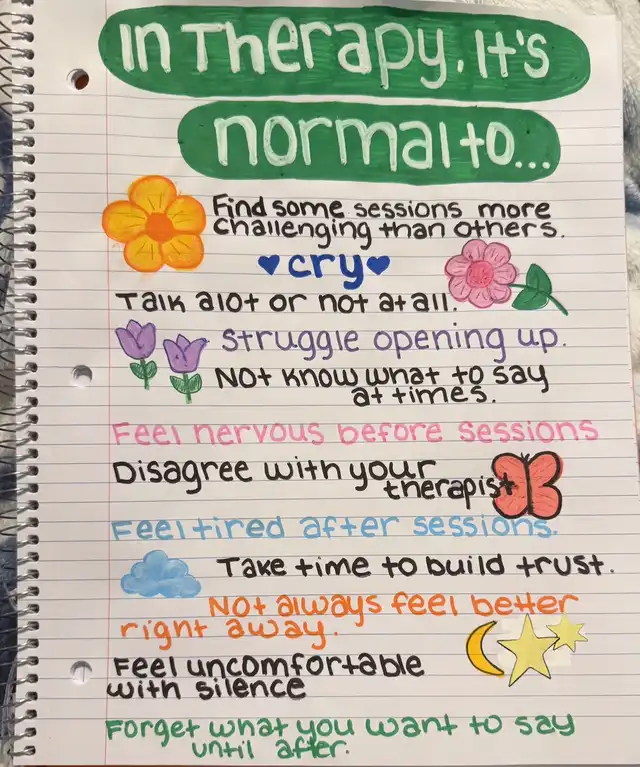 In Therapy, It's
normal to...
Find some sessions more
challenging than others.
cry
Talk alot or not at all.
Struggle opening up.
Not know what to say
at times.
Feel nervous before sessions
Disagree with your
therapist
Feel tired after sessions.
Take time to build trust.
Not always feel better
right away.
Feel uncomfortable
with silence
Forget what you want to say
until after.